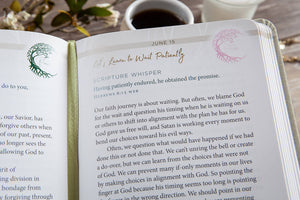 to do you,
, our Savior, has
forgive others when
of our past, present,
no longer sees the
allowing God to
irit of
ing division in
bondage from
y forgiving through
JUNE 15
Learn to Wait Patiently
SCRIPTURE WHISPER
Having patiently endured, he obtained the promise.
HEBREWS 6:15 WEB
Our faith journey is about waiting. But often, we blame God
for the wait and question his timing when he is waiting on us
or others to shift into alignment with the plan he has for us.
God gave us free will, and Satan is working every moment to
bend our choices toward his evil ways.
Often, we question what would have happened if we had
done this or not done that. We can't unring the bell or create
a do-over, but we can learn from the choices that were not
of God. We can prevent many if only moments in our lives
by making choices in alignment with God. So pointing the
finger at God because his timing seems too long is pointing
the in the wrong direction. We should point in our